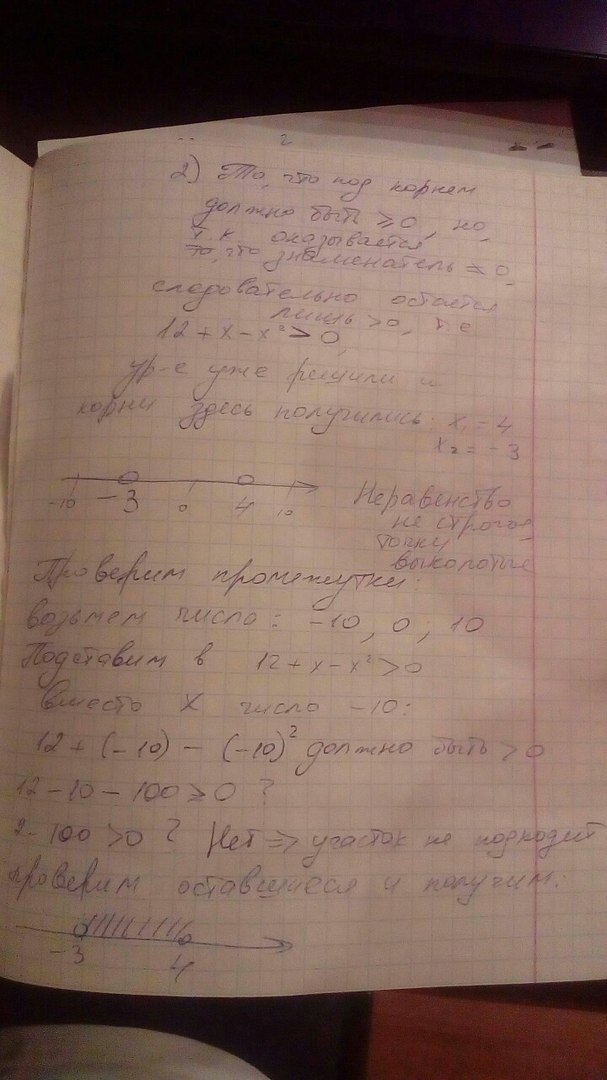 2) То, что под корнем
должно быть ≥0, но,
т.к. оказывается,
что знаменатель ≠ 0,
следовательно остается
лишь >0, т.е
12 + x − x² > 0,
ур-е уже решили и
корни здесь получились: x₁ = 4
x₂ = −3
−10 −3 0 4 10
Неравенство
не строгое,
точки
выколотые
Проверим промежутки:
возьмем число: −10, 0, 10
Подставим в 12 + x − x² > 0
вместо x число −10:
12 + (−10) − (−10)² должно быть > 0
12 − 10 − 100 ≥ 0 ?
2 − 100 > 0 ? Нет => участок не подходит
проверим оставшиеся и получим:
−3 4